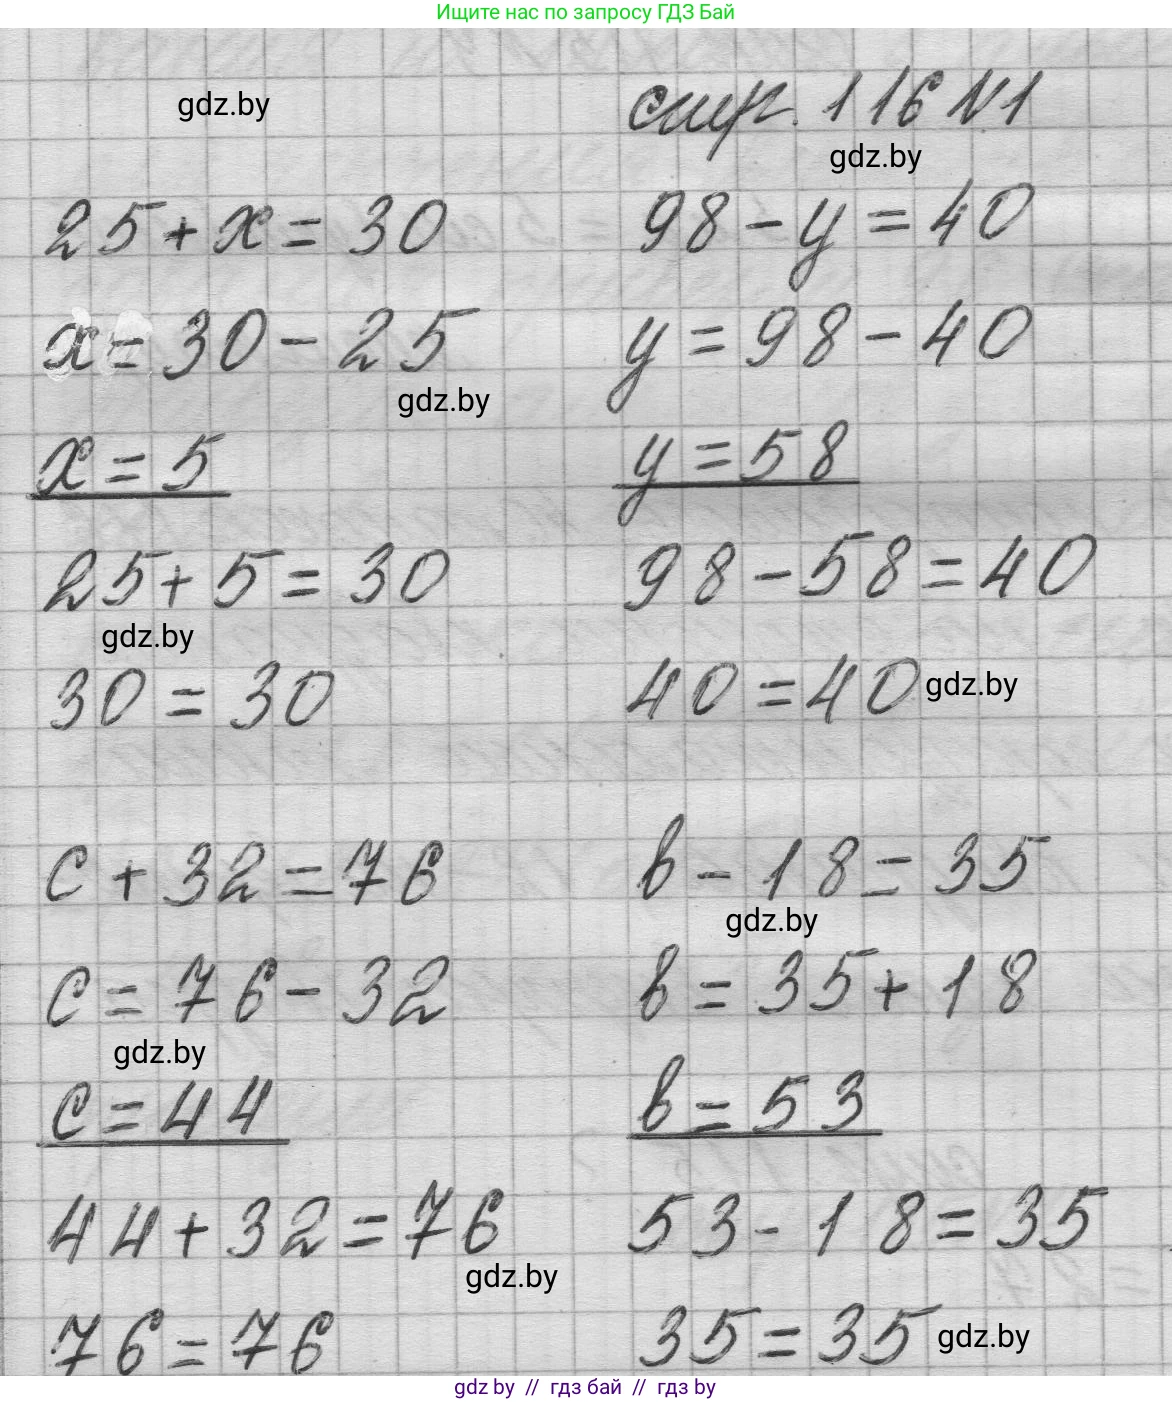 Ищите нас по запросу ГДЗ Бай
gdz.by
стр. 116 №1
gdz.by
25 + x = 30
x = 30 - 25
gdz.by
x = 5
25 + 5 = 30
gdz.by
30 = 30
98 - y = 40
y = 98 - 40
y = 58
98 - 58 = 40
40 = 40
gdz.by
c + 32 = 76
c = 76 - 32
gdz.by
c = 44
44 + 32 = 76
gdz.by
76 = 76
b - 18 = 35
gdz.by
b = 35 + 18
b = 53
53 - 18 = 35
35 = 35
gdz.by
gdz by // гдз бай // гдз by